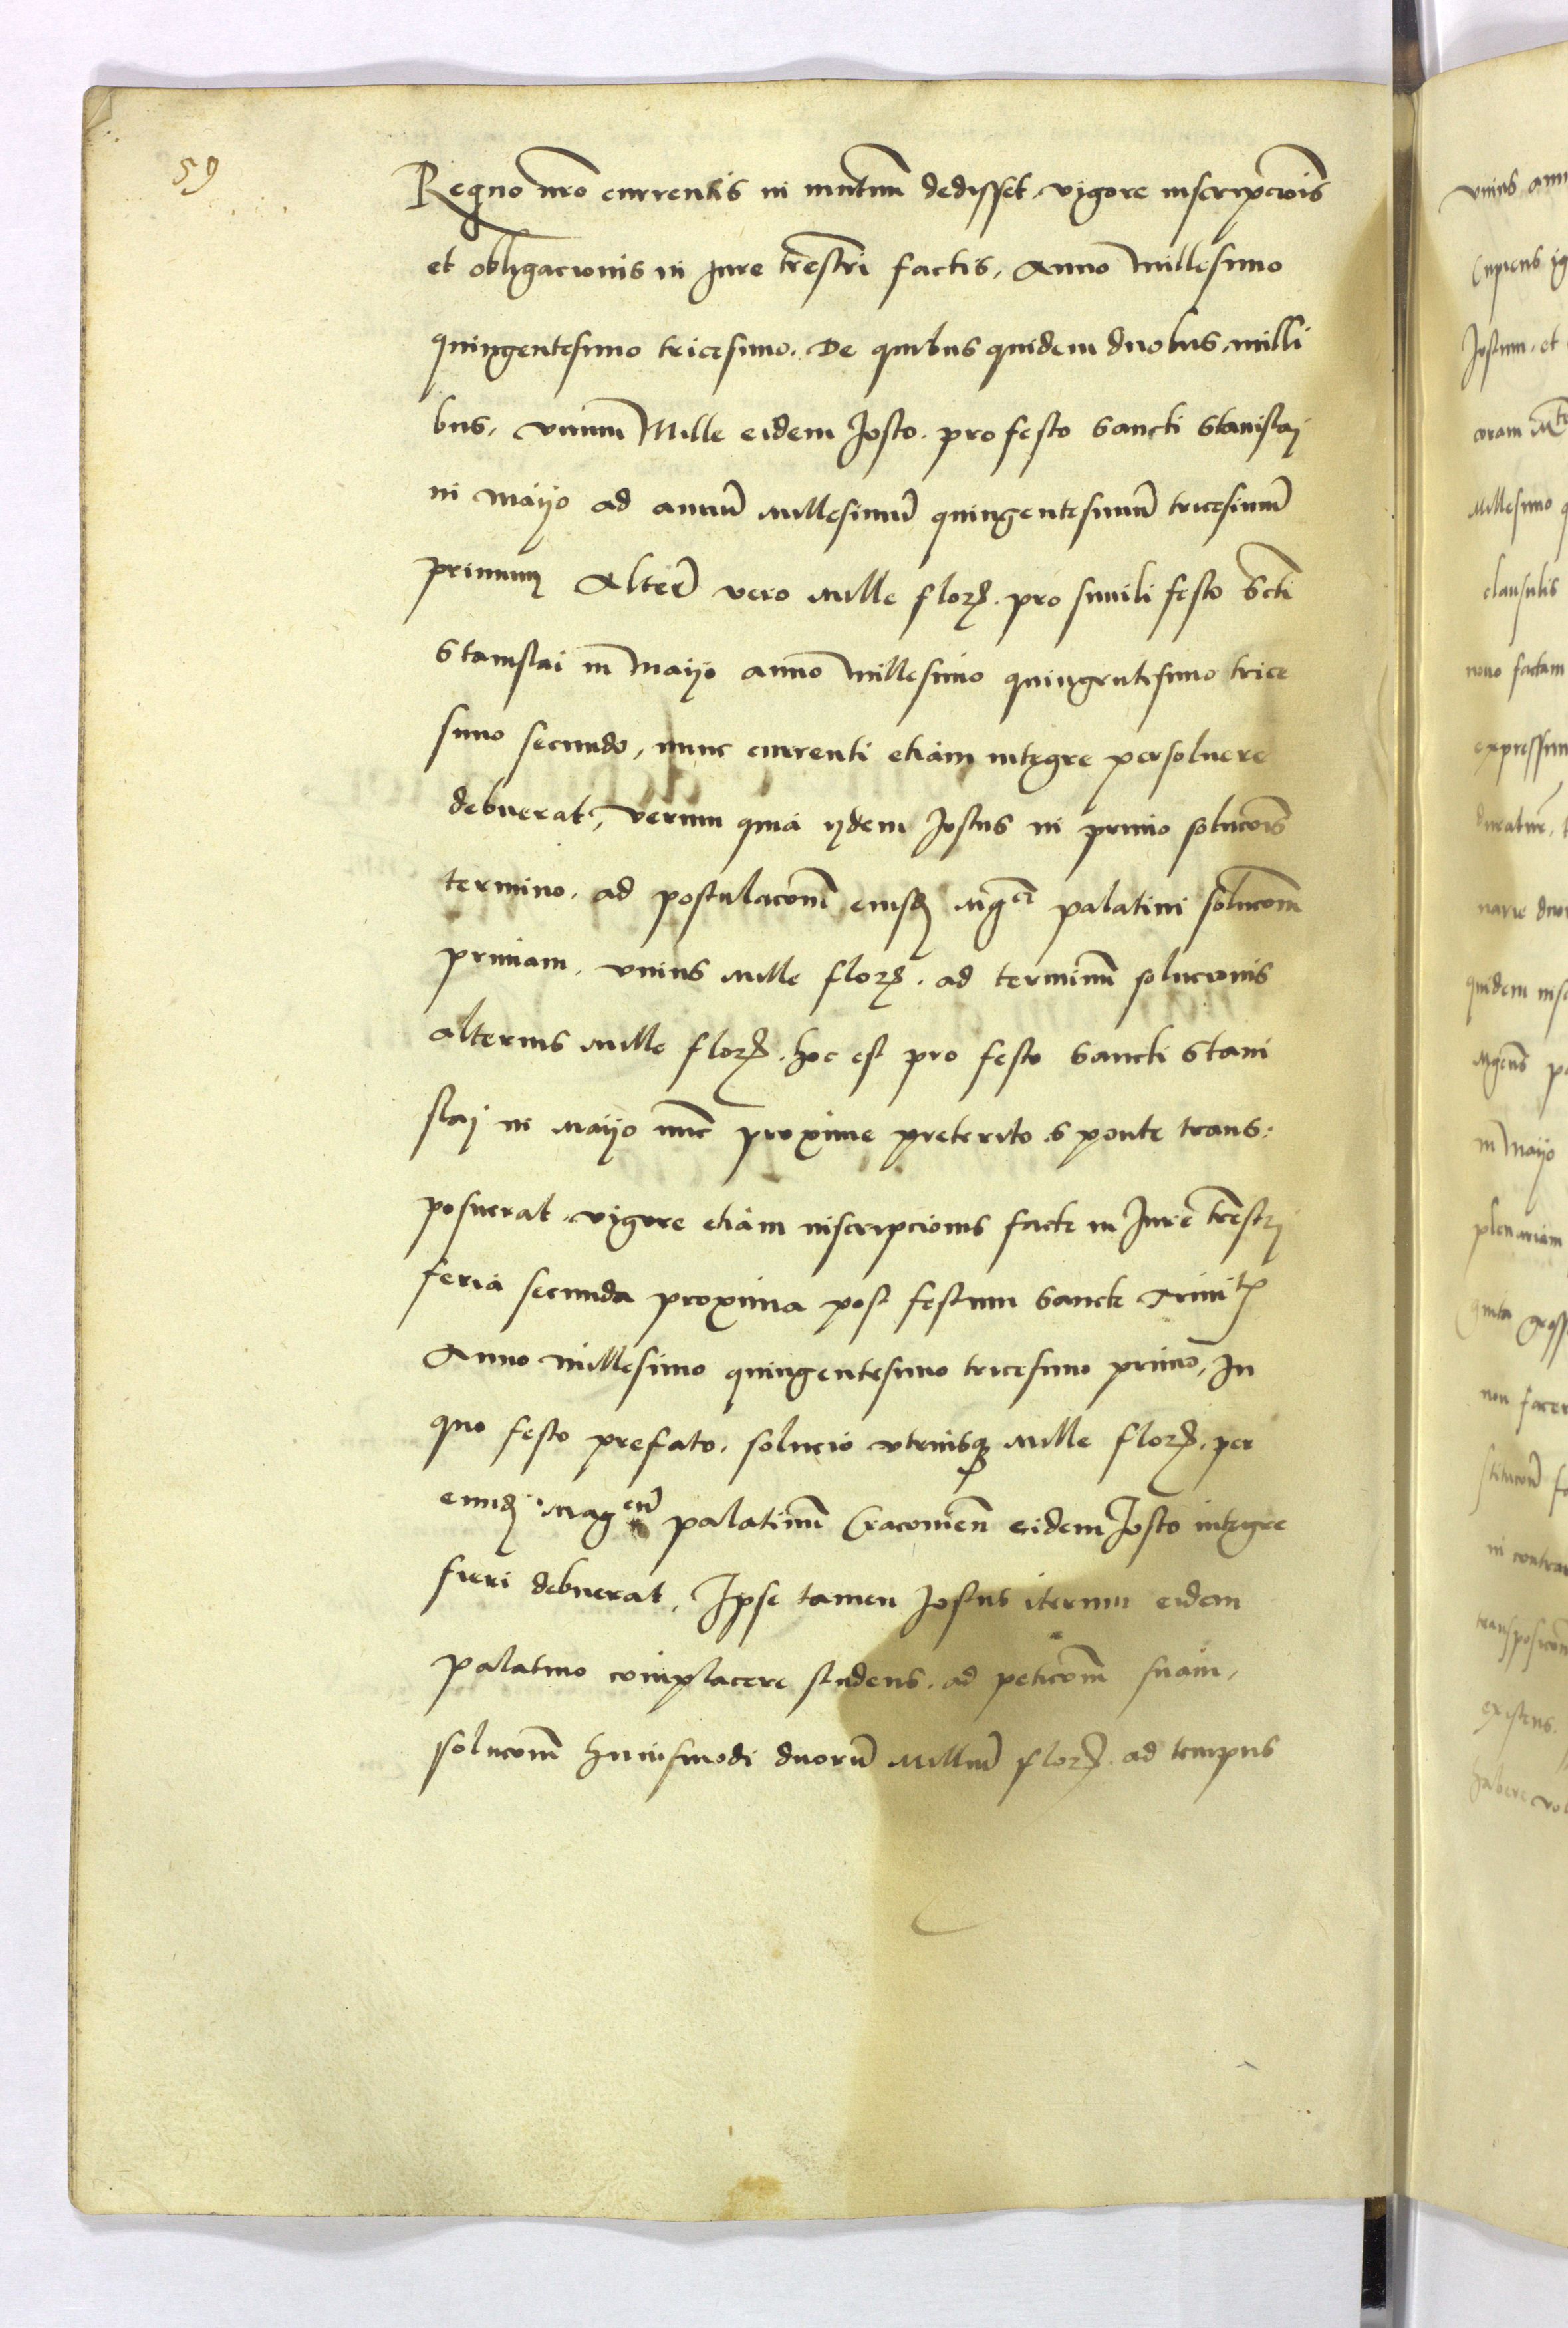 59
Regno nr̃o currentis in mutuum dedisset vigore inscripc̃ois
et obligacionis in Jure terr̃estri factis, Anno Millesimo
quingentesimo tricesimo. De quibus quidem duobus milli
bus, vnum Mille eidem Josto pro festo Sancti Stanislaj
in Mayo ad annũ Millesimũ quingentesimũ tricesimũ
primum Alterũ vero Mille floꝝ. pro simili festo Scti
Stanislai in Mayo anno Millesimo quingentesimo trice
simo secundo, nunc currenti etiam integre persoluere
debuerat, verum quia ydem Jostus in primo soluc̃ois
termino. ad postulac̃om̃ eiusd̃ Mgci palatini soluc̃om̃
primam. vnius Mille floꝝ. ad terminũ solucionis
alterius Mille floꝝ. hoc est pro festo Sancti Stani
slaj in Mayo nũc proxime preterito sponte trans:
posuerat. vigore etiam inscripcionis facte in Jure terr̃estrj
feria secunda proxima post festum Sancte Trinitˢ
Anno Millesimo quingentesimo tricesimo primo, In
quo festo prefato. solucio vtriusqꝫ Mille floꝝ. per
eund̃ Magcũ palatinũ Cracouieñ eidem Josto integre
fieri debuerat. Ipse tamen Jostus iterum eidem
palatino complacere studens. ad petic̃om̃ suam,
soluc̃om̃ huiusmodi duorũ Milliũ floꝝ. ad tempus
vnius ann
Cupiens
Jostum. et
Millesimo q
clausulis
nono factam
expressum
quidem insc
in Mayo
plenariam
non facer
in contrar
existens.
habere vol